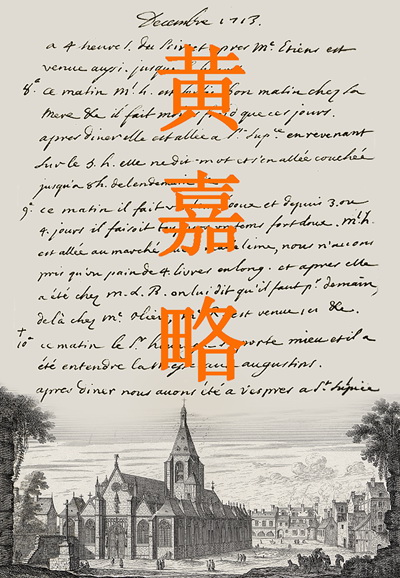 Decembre 1713.
a 4 heures. du Soir et apres Me. Etiens est
venue aussi. jusque
8e. ce matin Me. h. est bon matin chez sa
Mere &e il fait que ces jours.
apres diner elle est allée a St. Supce en revenant
sur le 5. h. elle ne dit mot et s'en allée couchée
jusqu'a 8h. de lendemain
9e. ce matin il fait doux et depuis 3. ou
4. jours il faisoit tems fort doux. Me. h.
est allée au marché nous n'avons
pris qu'un pain de 4. livres en long. et apres elle
a été chez m. L. R. on lui dit qu'il faut pr. demain,
de là chez Me. est venue ici &e.
10e. ce matin le Sr. porte mieu et il a
été entendre augustins.
apres diner nous avons été a vespres a St. Supice
黄嘉略